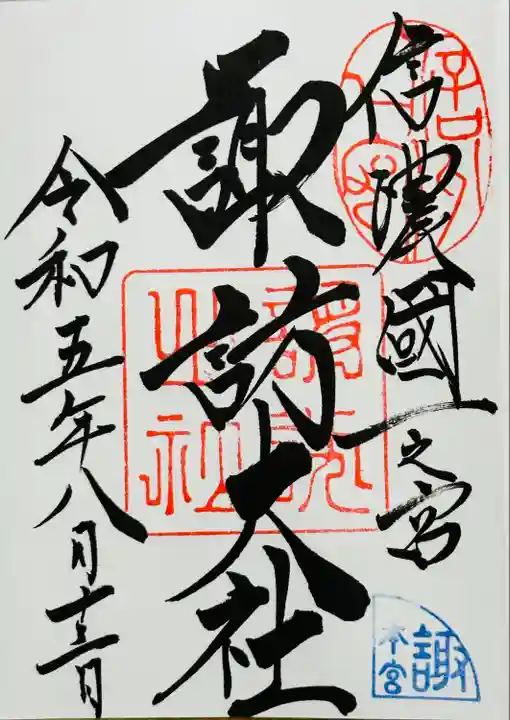 信濃國一之宮
諏訪大社
令和五年八月十三日
諏
本宮